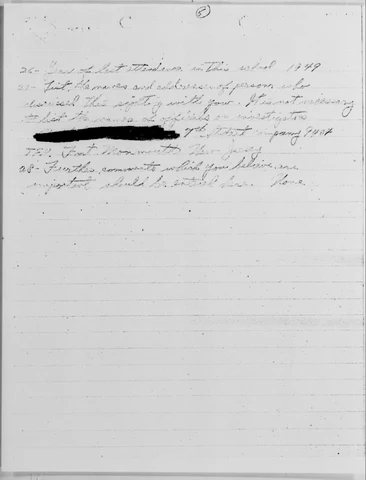 5
26- Year of last attendance in this school 1949
27- List the names and addresses of persons who
discussed this sighting with you. It is not necessary
to list the names of officials or investigators
7th Street company 9404
Fort Monmouth New Jersey
28- Further comments which you believe are
important should be entered here. None